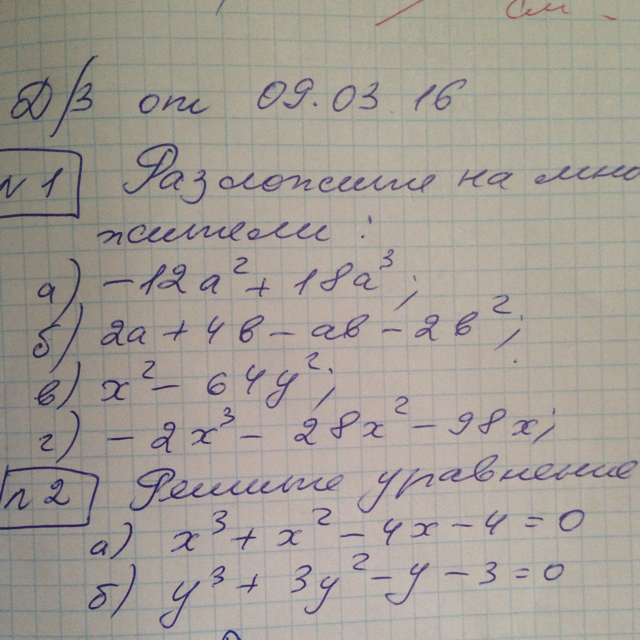 см.
Д/З от 09.03.16
N 1 Разложите на мно
жители:
а) -12a² + 18a³;
б) 2a + 4в - aв - 2в²;
в) x² - 64y²;
г) -2x³ - 28x² - 98x;
n 2 Решите уравнение
а) x³ + x² - 4x - 4 = 0
б) y³ + 3y² - y - 3 = 0